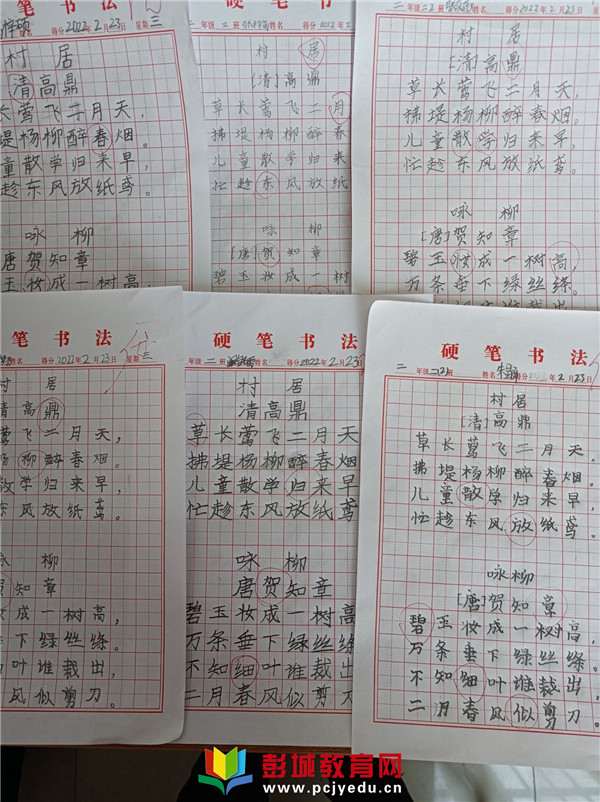 2022年2月23日 星期三
村居
清高鼎
长莺飞二月天,
堤杨柳醉春烟。
童散学归来早,
趁东风放纸鸢。
咏柳
唐贺知章
玉妆成一树高,
硬笔书
年级 二 班 姓名 得分 2022年2
村居
[清]高鼎
草长莺飞二月
拂堤杨柳醉春
儿童散学归来
忙趁东风放纸
咏柳
[唐]贺知章
碧玉妆成一树
年级 二2 班 得分 2022年2月23日
村居
[清]高鼎
草长莺飞二月天,
拂堤杨柳醉春烟。
儿童散学归来早,
忙趁东风放纸鸢。
咏柳
[唐]贺知章
碧玉妆成一树高,
万条垂下绿丝绦。
笔书法
得分 2022年2月23日 星期三
村居
清高鼎
莺飞二月天,
杨柳醉春烟。
散学归来早,
东风放纸鸢。
咏柳
贺知章
成一树高,
下绿丝绦。
叶谁裁出,
风似剪刀。
硬笔书法
年级 二 班 姓名 得分 2022年2月23日
村居
清高鼎
草长莺飞二月天
拂堤杨柳醉春烟
儿童散学归来早
忙趁东风放纸鸢
咏柳
唐贺知章
碧玉妆成一树高
万条垂下绿丝绦
不知细叶谁裁出
二月春风似剪刀
硬笔书法
二 年级 二(2) 班 姓名 得分 2月23日
村居
[清]高鼎
草长莺飞二月天,
拂堤杨柳醉春烟。
儿童散学归来早,
忙趁东风放纸鸢。
咏柳
[唐]贺知章
碧玉妆成一树高,
万条垂下绿丝绦。
不知细叶谁裁出,
二月春风似剪刀。
彭城教育网
www.pcjyedu.cn